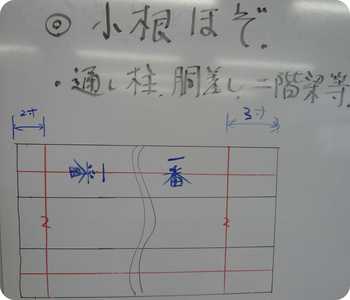 ◎ 小根ほぞ
・通し柱、胴差し、二階梁等
2寸
3寸
一番
一番